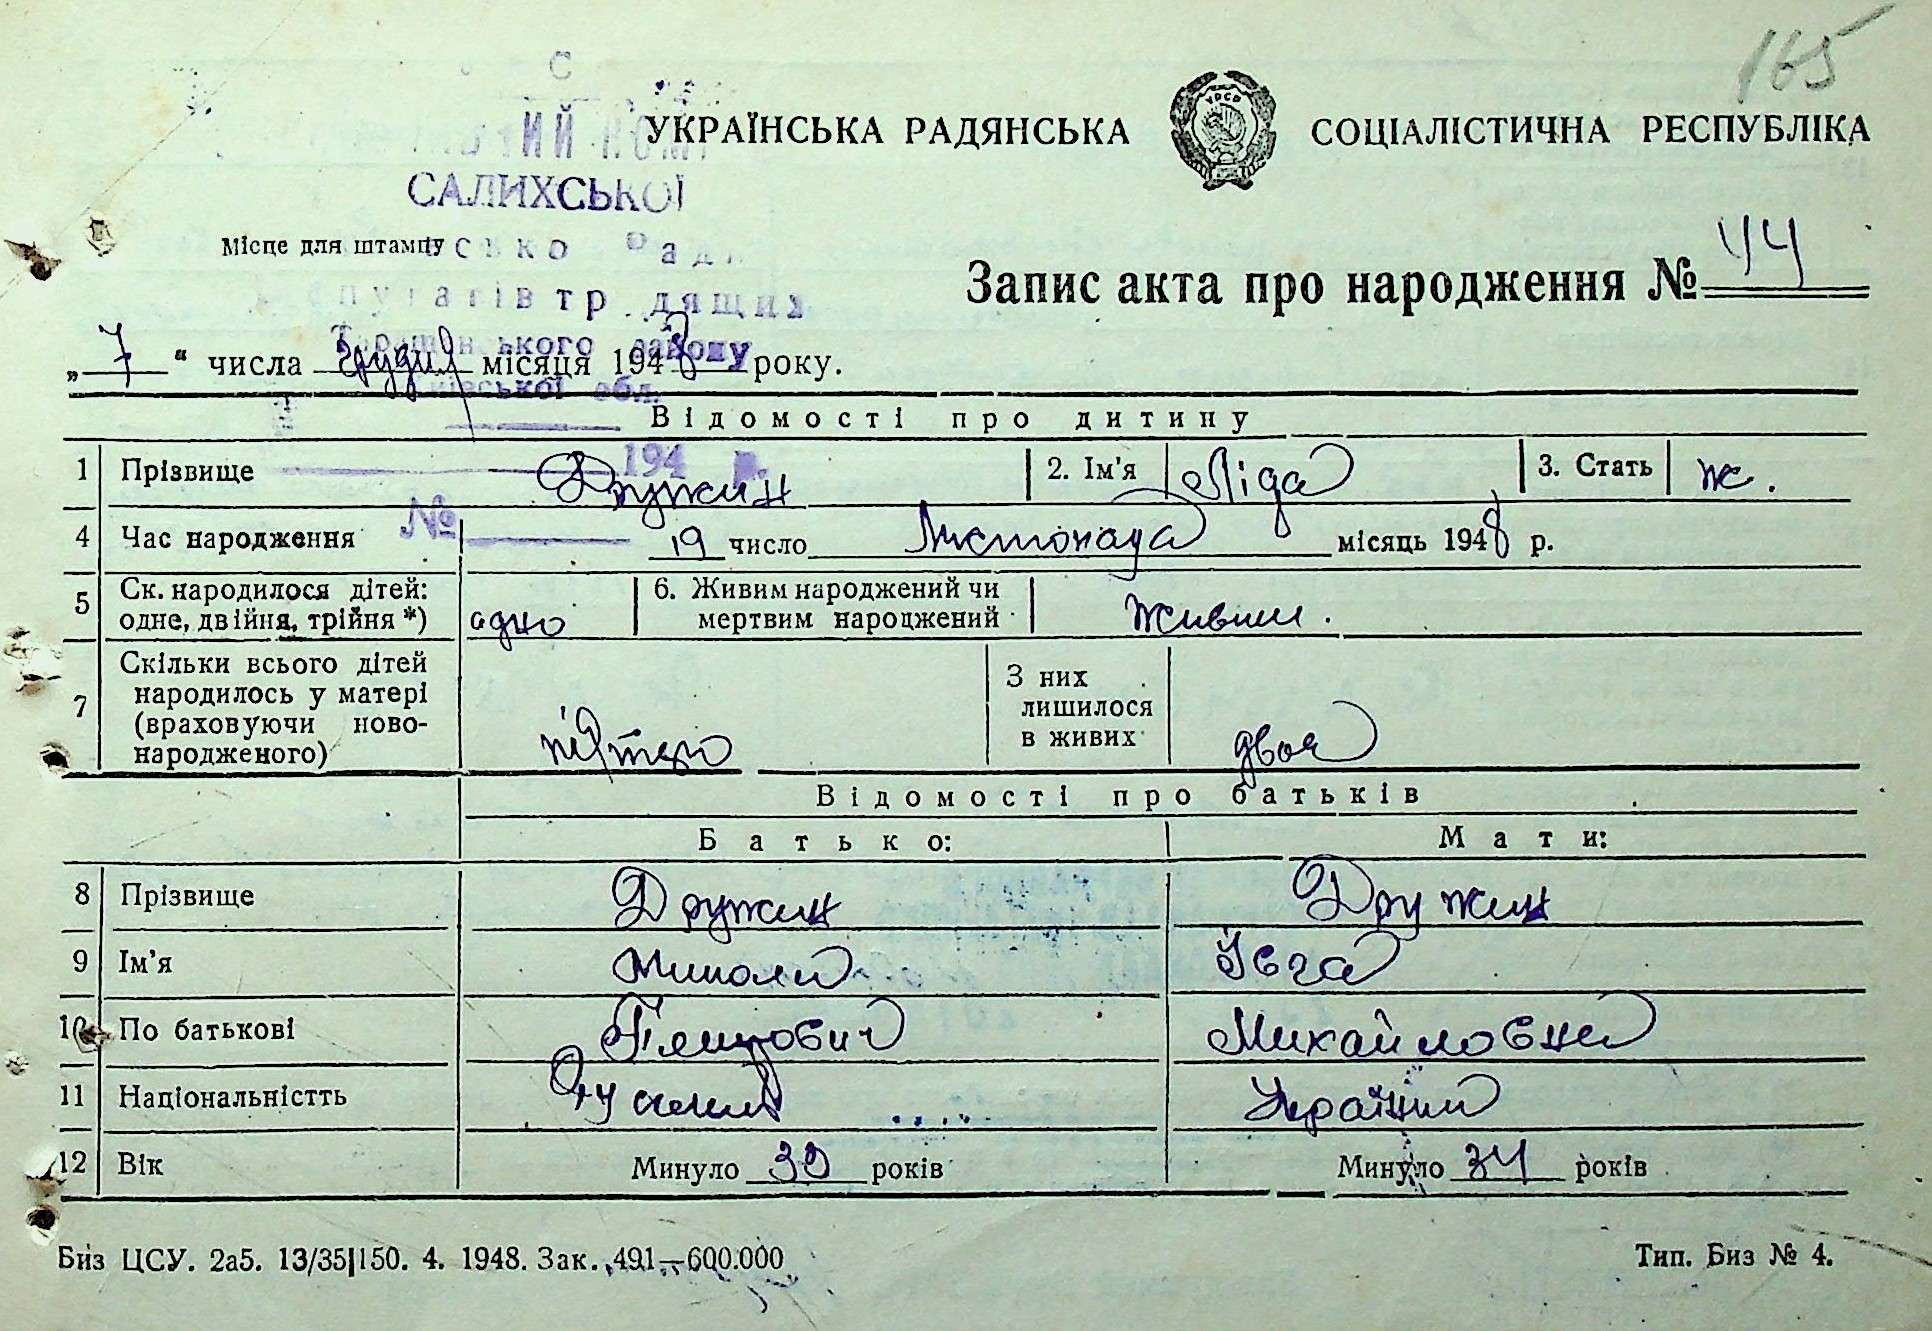 165
УКРАЇНСЬКА РАДЯНСЬКА СОЦІАЛІСТИЧНА РЕСПУБЛІКА
САЛИХСЬКОЇ
Місце для штампу
Запис акта про народження № 44
„ 7 “ числа Грудня місяця 1948 року.
Київської обл.
Відомості про дитину
1 Прізвище Дружин 2. Ім'я Ліда 3. Стать ж.
194 р.
№
4 Час народження 19 число Листопада місяць 1948 р.
5 Ск. народилося дітей: одне, двійня, трійня *) одно 6. Живим народжений чи мертвим народжений живим.
7 Скільки всього дітей народилось у матері (враховуючи новонародженого) п'ятеро З них лишилося в живих двоя
Відомості про батьків
Батько: Мати:
8 Прізвище Дружин Дружин
9 Ім'я Микола Івга
10 По батькові Михайловна
11 Національністть Українка
12 Вік Минуло 39 років Минуло 34 років
Биз ЦСУ. 2а5. 13/35|150. 4. 1948. Зак. 491—600.000 Тип. Биз № 4.